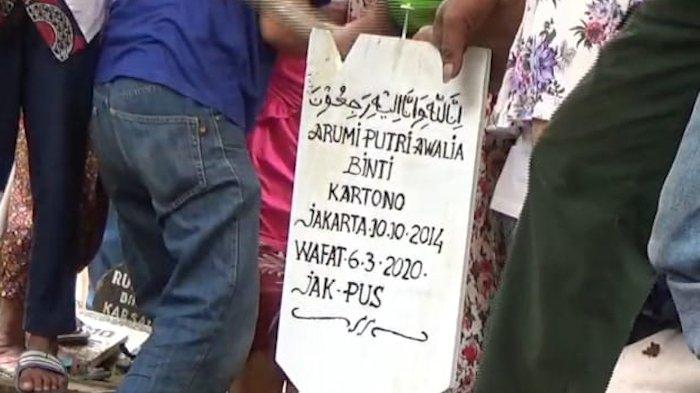 اِنَّا لِلّٰهِ وَاِنَّا اِلَيْهِ رَاجِعُوْنَ
ARUMI PUTRI AWALIA
BINTI
KARTONO
JAKARTA·10·10·2014
WAFAT·6·3·2020·
JAK·PUS